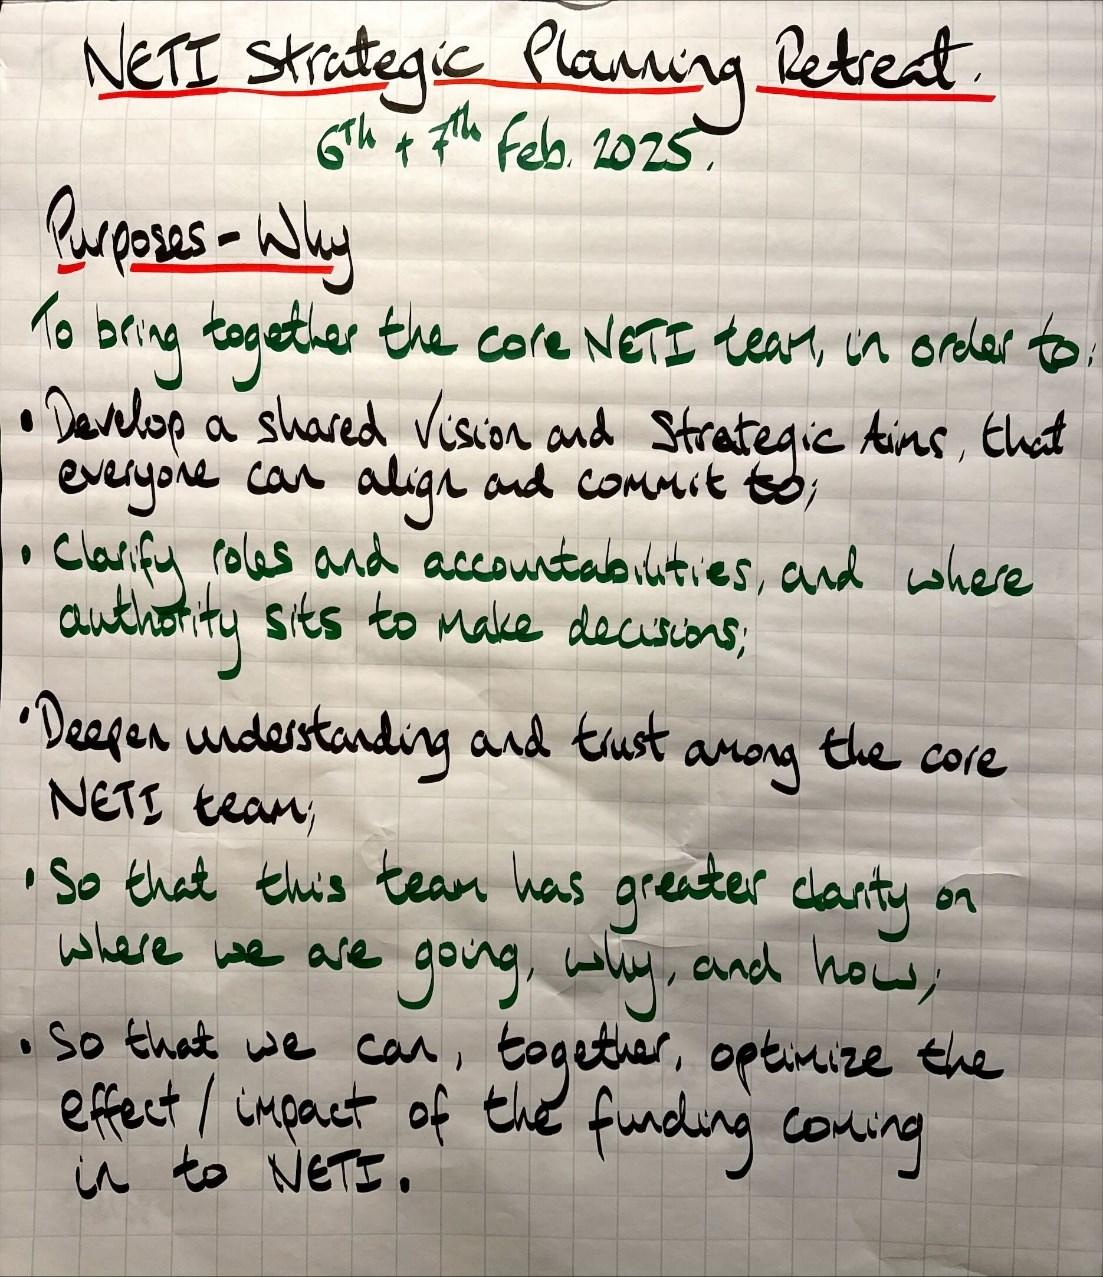 NETI Strategic Planning Retreat.
6Th + 7th Feb. 2025.
Purposes - Why
To bring together the core NETI team, in order to:
• Develop a shared Vision and Strategic Aims, that
everyone can align and commit to;
• Clarify roles and accountabilities, and where
authority sits to make decisions;
• Deepen understanding and trust among the core
NETI team;
• So that this team has greater clarity on
where we are going, why, and how;
• So that we can, together, optimize the
effect / impact of the funding coming
in to NETI.